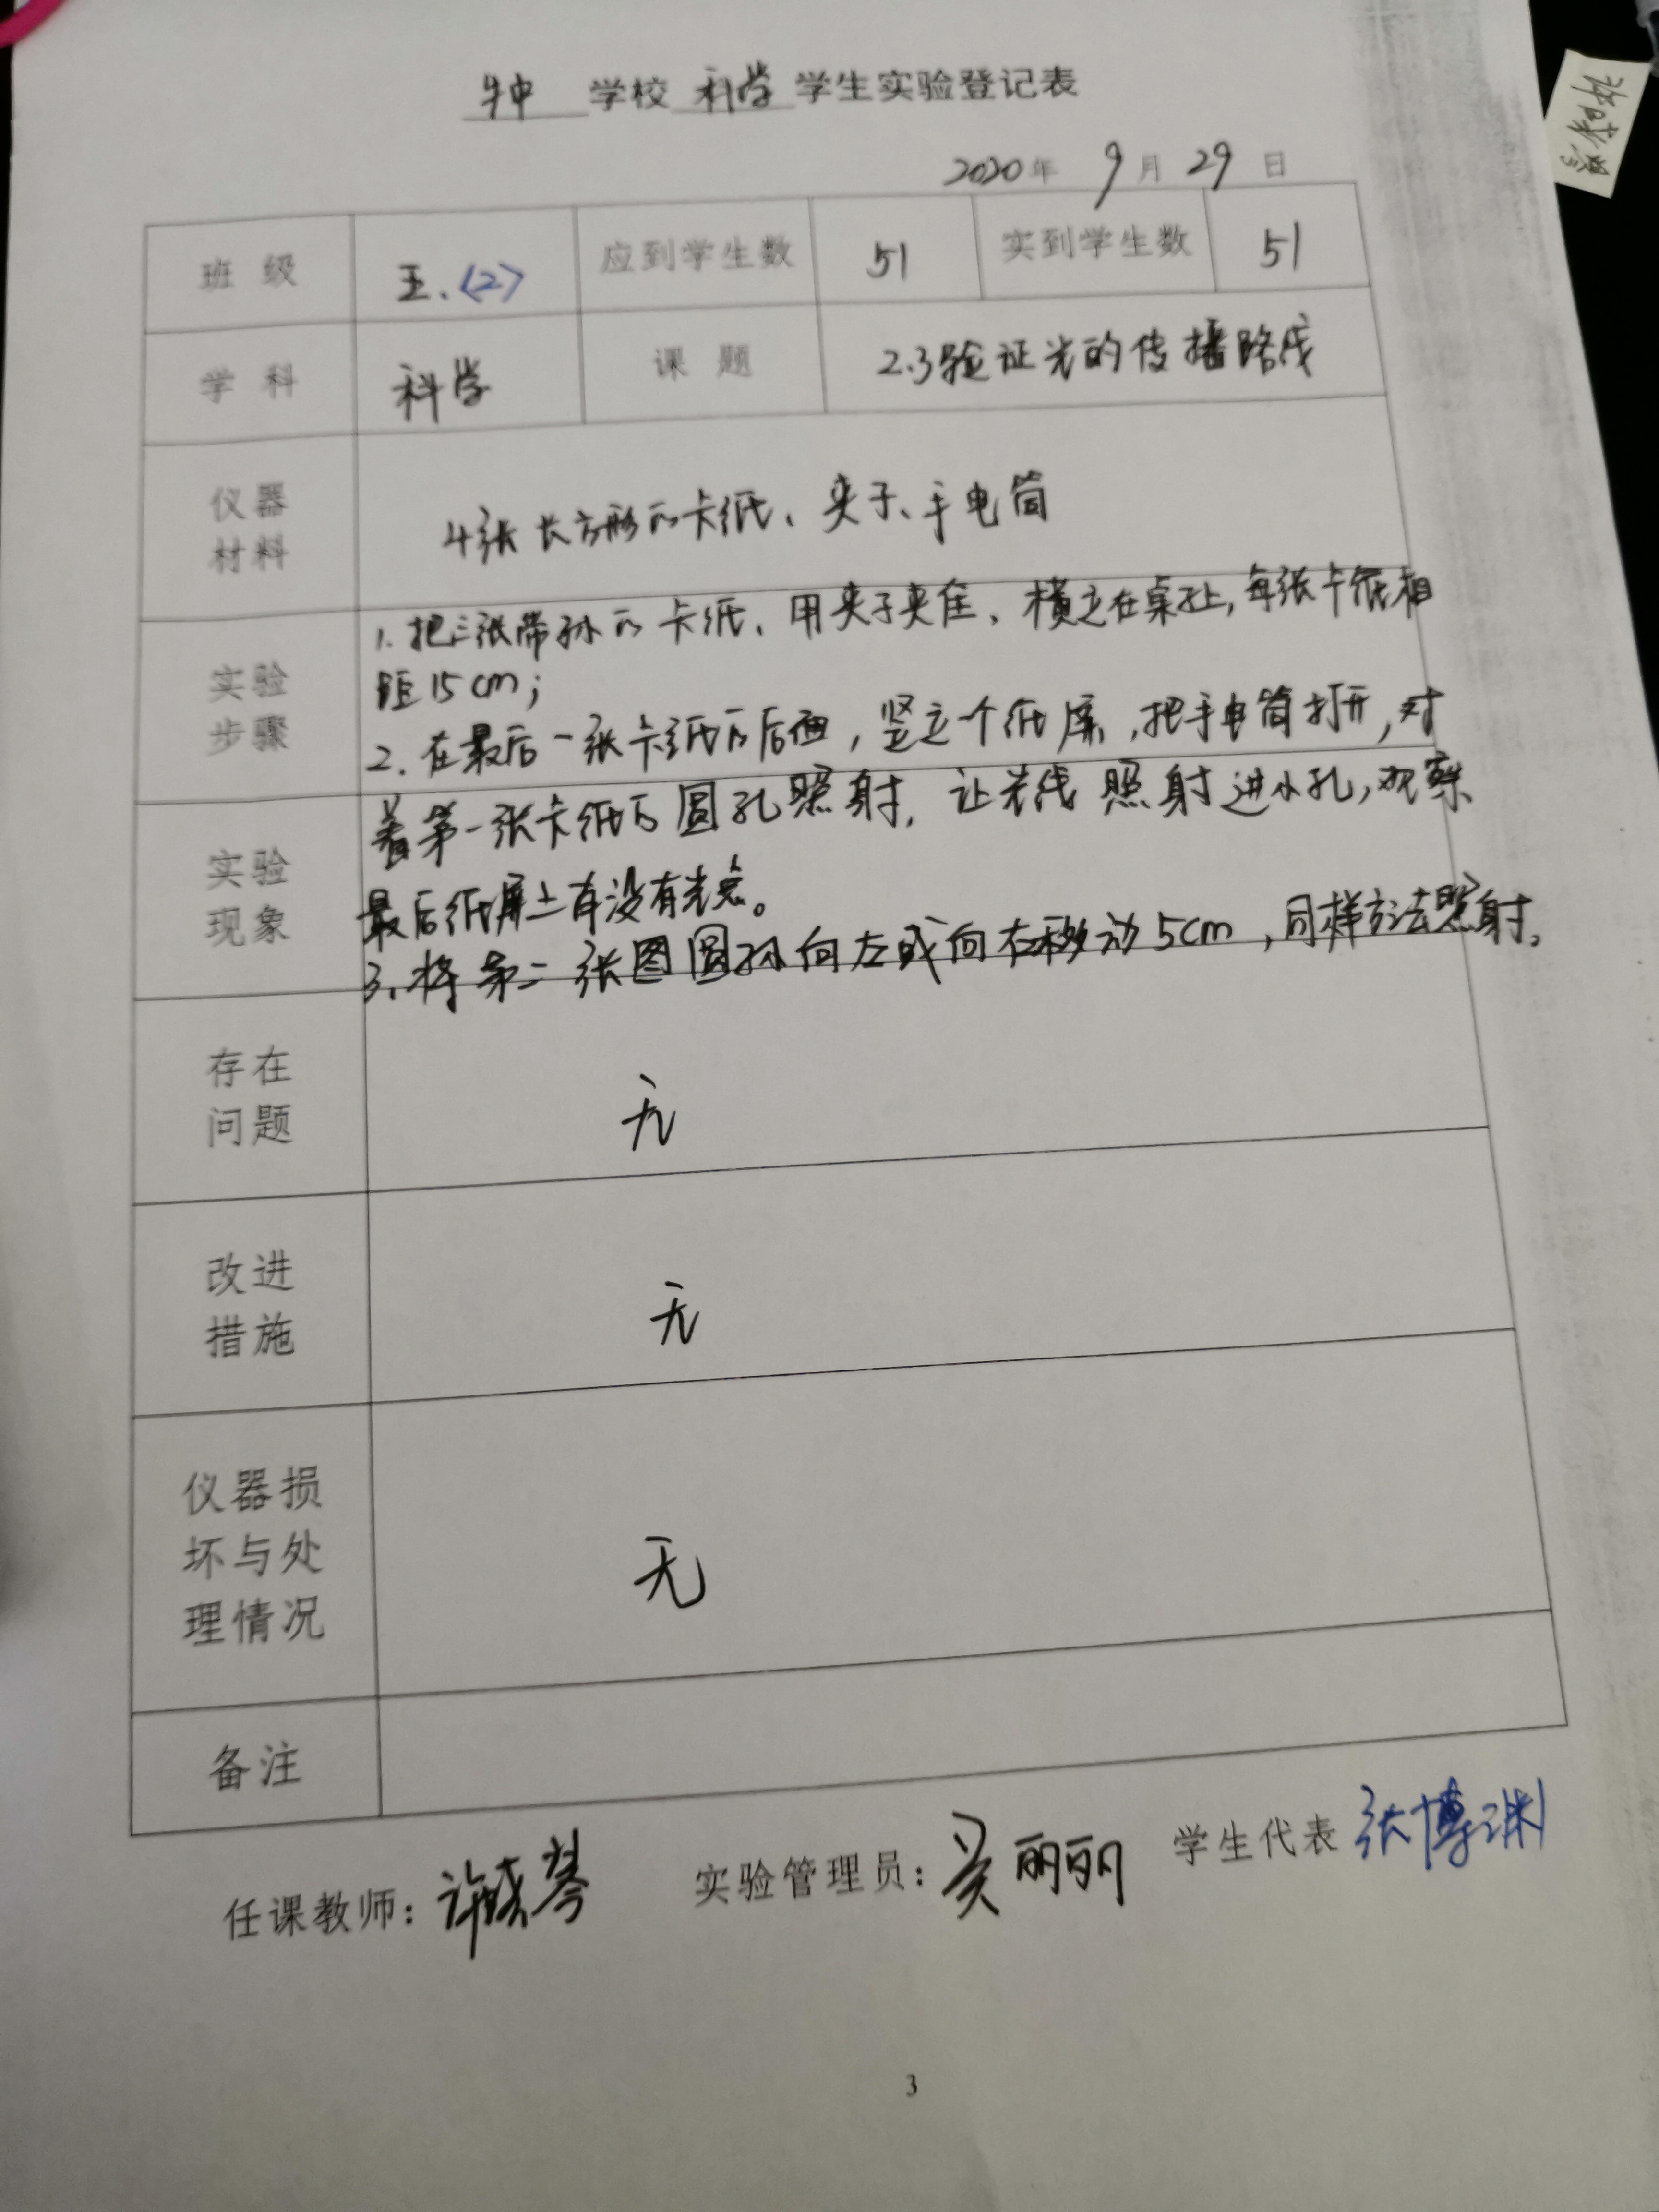 学校 科学 学生实验登记表
2020年 9月 29日
班级 五.(2) 应到学生数 51 实到学生数 51
学科 科学 课题 2.3验证光的传播路线
仪器
材料
4张长方形的卡纸、夹子、手电筒
实验
步骤
1.把三张带孔的卡纸、用夹子夹住、横立在桌上,每张卡纸相
距15cm;
2.在最后一张卡纸的后面,竖立个纸屏,把手电筒打开,对
实验
现象
着第一张卡纸的圆孔照射,让光线照射进小孔,观察
最后纸屏上有没有光点。
3.将第二张图圆孔向左或向右移动5cm,同样方法照射。
存在
问题
无
改进
措施
无
仪器损
坏与处
理情况
无
备注
任课教师: 许晓琴 实验管理员: 吴丽丽 学生代表 张博渊
3